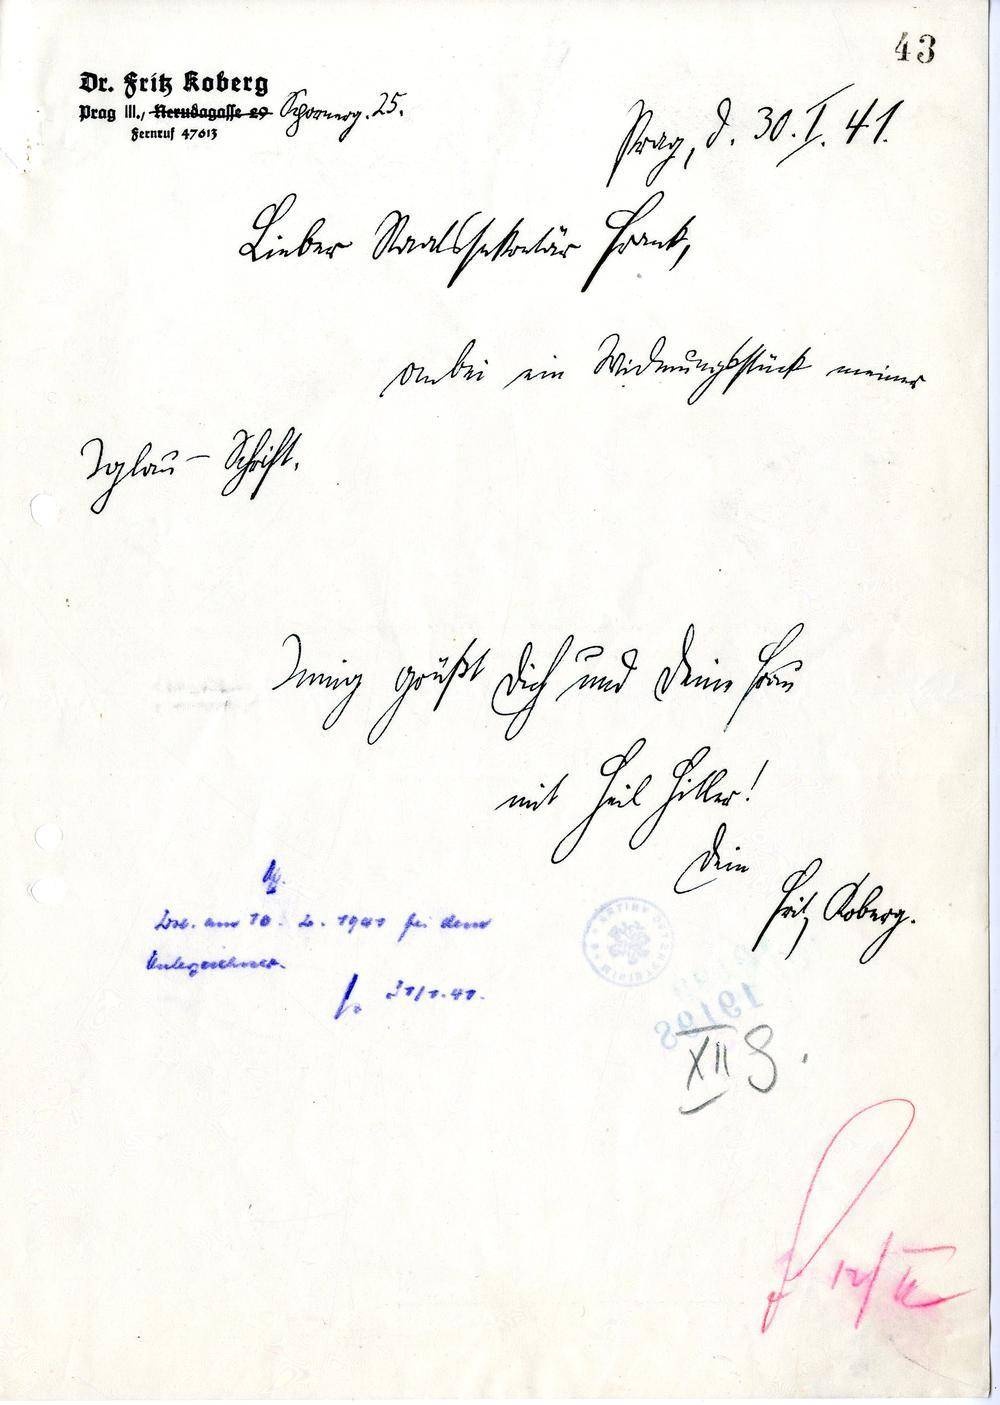 43
Dr. Fritz Koberg
Prag III., Nerudagasse 29 Schornerg. 25.
Fernruf 47613
Prag, d. 30. I. 41.
Lieber Staatssekretär Frank,
anbei ein Widmungsstück meiner
Iglau-Schrift.
Innig grüßt Dich und Deine Frau
mit Heil Hitler!
Dein
Fritz Koberg.
am 10. 2. 1941 bei dem
Unterzeichner.
31/1.41.
XII
12/II